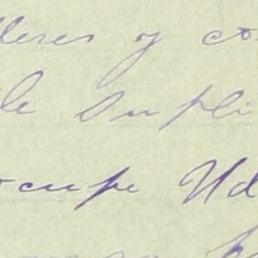 lleres y co
le supli
ocupe Ud